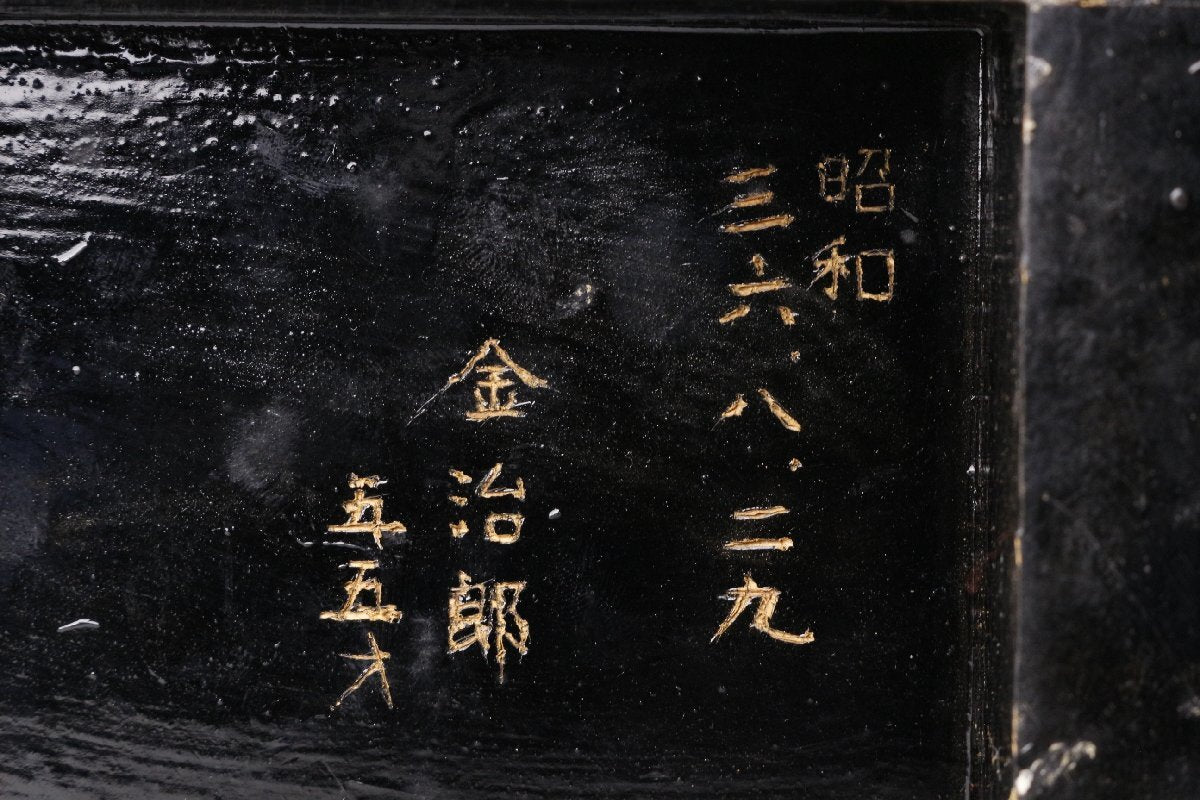 昭和
三六・八・二九
金治郎
五五才